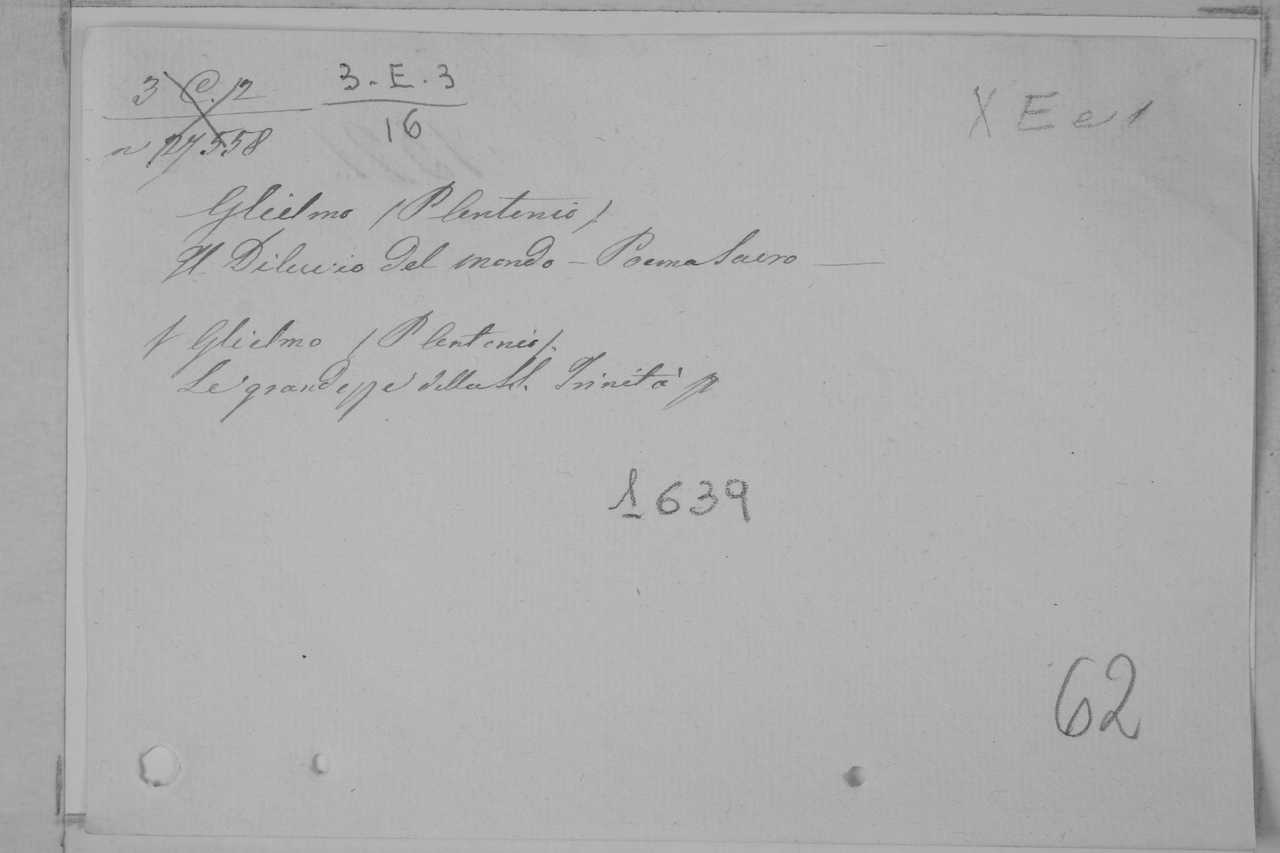 3 C. 12
n 27558
3. E. 3
16
X E e 1
Glielmo (Plentenio)
Il Diluvio del mondo - Poema Sacro —
Glielmo (Plentenio).
Le grandezze della SS. Trinità
1639
62